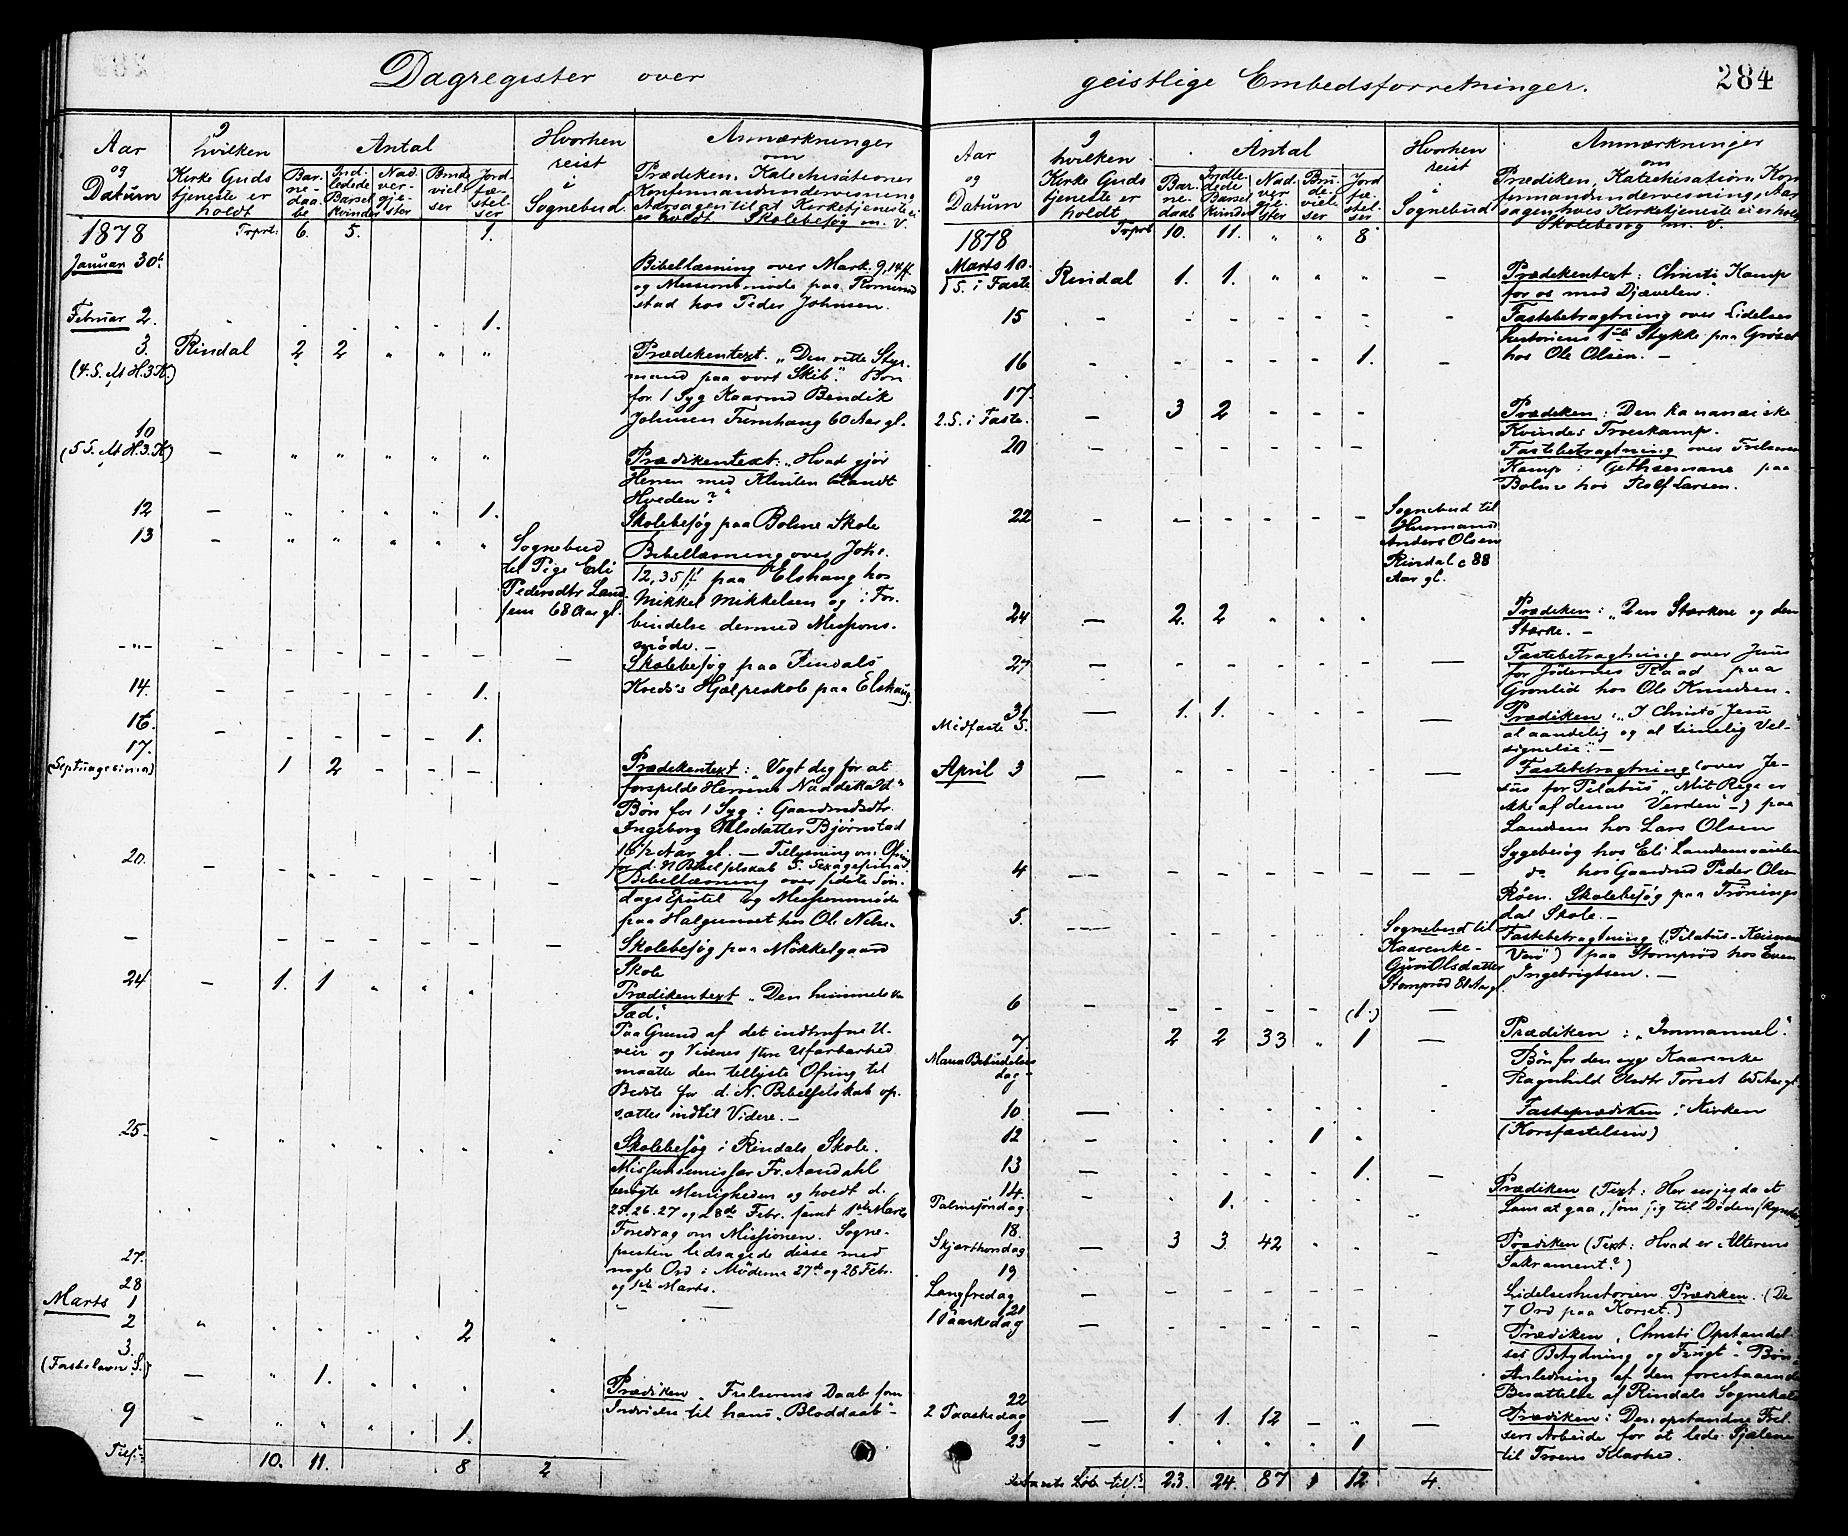 Dagregister over
Aar og Datum
I hvilken Kirke Gudstjeneste er holdt
Antal
Barnedaabe
Indledede Barselkvinder
Nadvergjester
Brudevielser
Jordfæstelser
Hvorhen reist i Sognebud
Anmærkninger
om
Prædiken, Katechisationer
Konfirmandundervisning
Aarsagen til at Kirketjeneste ei
er holdt Skolebesøg m. V.
1878 Trprt: 6. 5. 1.
Januar 30te
Bibellæsning over Mark. 9,14 ff
og Missionsmøde paa
stad hos Peder Johnsen.
Februar 2. 1.
3. Rindal 2 2 " " "
(4. S. M H.3.K.)
Prædikentext. "Den rette Styrmand
paa vort Skib". Bøn
for 1 Syg Kaarmd Bendik
Johnsen 60 Aar gl.
10
(5 S. M H.3.K) – " " " " "
Prædikentext: "Hvad gjør
Herren med Klinten blandt
Hveden?"
12 – " " " " 1.
Skolebesøg paa Bolme Skole
13 – " " " " "
Sognebud
til Pige Eli
Pedersdtr Landsem
68 Aar gl.
Bibellæsning over Joh.
12,35 ff paa Elshaug hos
Mikkel Mikkelsen og i Forbindelse
dermed Missionsmøde. –
–"– – – – – – – –
Skolebesøg paa Rindals
Kreds's Hjælpeskole paa Elshaug
14. – – – – – 1.
16. – – – – – 1.
17.
(Septuagesima) 1 2 – – –
Prædikentext: "Vogt dig for at
forspilde Herrens Naadekald"
Bøn for 1 Syg: Gaardmdsdtr
Ingeborg Olsdatter Bjørnstad
16½ Aar gl. – Tillysning om Ofring
for d. N Bibelselskab S. Sexagesima
20. – – – – – – –
Bibellæsning over sidste Søndags
Epistel og Missionsmøde
paa Halgunset hos Ole Nils.
– – – – – – –
Skolebesøg paa Møkkelgaard
Skole
24 – 1. 1 " " "
Prædikentext "Den himmelske
Sæd".
Paa Grund af det indtrufne Uveir
og Veienes store Ufarbarhed
maatte den tillyste Ofring til
Bedste for d. N. Bibelselskab opsættes
indtil Videre. –
25. " " " " " " "
Skolebesøg i Rindals Skole.
Missionsemissær Fr. Aandahl
besøgte Menigheden og holdt d.
25. 26. 27 og 28de Febr. samt 1ste Marts
Foredrag om Missionen. Sognepresten
ledsagede disse med
nogle Ord i Møderne 27de og 28 Febr.
og 1ste Marts.
27.
28
Marts 1
2 " 2
3.
(Fastelavn S.) – " 1. " " "
Prædiken "Frelserens Daab som
Indvielse til hans "Bloddaab" –
9 – " " " " 1.
10. 11. 8 2
geistlige Embedsforretninger.
284
Aar og Datum
I hvilken Kirke Gudstjeneste er holdt
Antal
Barnedaab
Indledede Barselkvinder
Nadvergjester
Brudevielser
Jordfæstelser
Hvorhen reist i Sognebud
Anmærkninger
om
Prædiken, Katechisation, Konfirmandundervisning,
Aarsagen hvis Kirketjeneste ei er holdt
Skolebesøg m. V.
1878 Trprt 10. 11. " " 8
Marts 10.
1 S. i Faste Rindal 1. 1. " " " –
Prædikentext: Christi Kamp
for os mod Djævelen".
15 – – – – – – –
Fastebetragtning over Lidelseshistoriens
1ste Stykke paa Grøset
hos Ole Olsen. –
16 – – – – – 1. –
17.
2. S. i Faste. – 3 2 – – –
Prædiken: Den kananæiske
Kvindes Troeskamp.
20 – – – – – –
Fastebetragtning over Frelserens
Kamp i Gethsemane paa
Bolme hos Rolf Larsen.
22 – – – – – –
Sognebud til
Huusmand
Anders Olsen
Rindal c 88
Aar gl.
24 – 2. 2 " " "
Prædiken: "Den Stærkere og den
Stærke. –
27 – – – – – – –
Fastebetragtning over Jesus
for Jødernes Raad paa
Grønlid hos Ole Knudsen.
31
Midfaste S. – 1. 1. – – – –
Prædiken: "I Christo Jesu
al aandelig og al timelig Velsignelse". –
April 3 – – – – – – –
Fastebetragtning (over Jesus
for Pilatus "Mit Rige er
ikke af denne Verden" –) paa
Landsem hos Lars Olsen
Sygebesøg hos Eli Landsemsvalen
4 – – – – – – –
do hos Gaardmd Peder Olsen
Røen. Skolebesøg paa Trøningsdal
Skole. –
5.
Sognebud til
Kaarenke
Guri Olsdatter
Stomprød 81 Aar gl.
Fastebetragtning ("Pilatus – Keiserens
Ven") paa Stomprød hos Even
Ingebrigtsen. –
6 – – – – – (1.) –
7. 2 2 33 " 1 –
Maria Bebudelsesdag –
Prædiken: "Immanuel".
Bøn for den syge Kaarenke
Ragnhild Olsdtr Torset 65 Aar gl.
10 – – – – – –
Fasteprædiken i Kirken
(Korsfæstelsen)
12 – 1 "
13 – 1. –
14.
Palmesøndag – 1.
Prædiken (Text: Her seer jeg da et
Lam at gaa, som jeg til Døden skynde)
18.
Skjærthorsdag – 3 3. 42 " " –
Prædiken (Text: Hvad er Alterens
Sakrament?)
19
Langfredag – – – – – – –
Lidelseshistorien. Prædiken. (De
7 Ord paa Korset.)
21
1 Paaskedag – – – – – – –
Prædiken, "Christi Opstandelses
Betydning og Frugt". Bøn i
Anledning af den forestaaende
Besættelse af Rindals Sognekald
22
2 Paaskedag – 1. 1. 12 – " –
Prædiken: Den opstandne Frelsers
Arbeide for at lede Sjælene
til Troens Klarhed.
23 – 1
23. 24. 87 1 12 4.